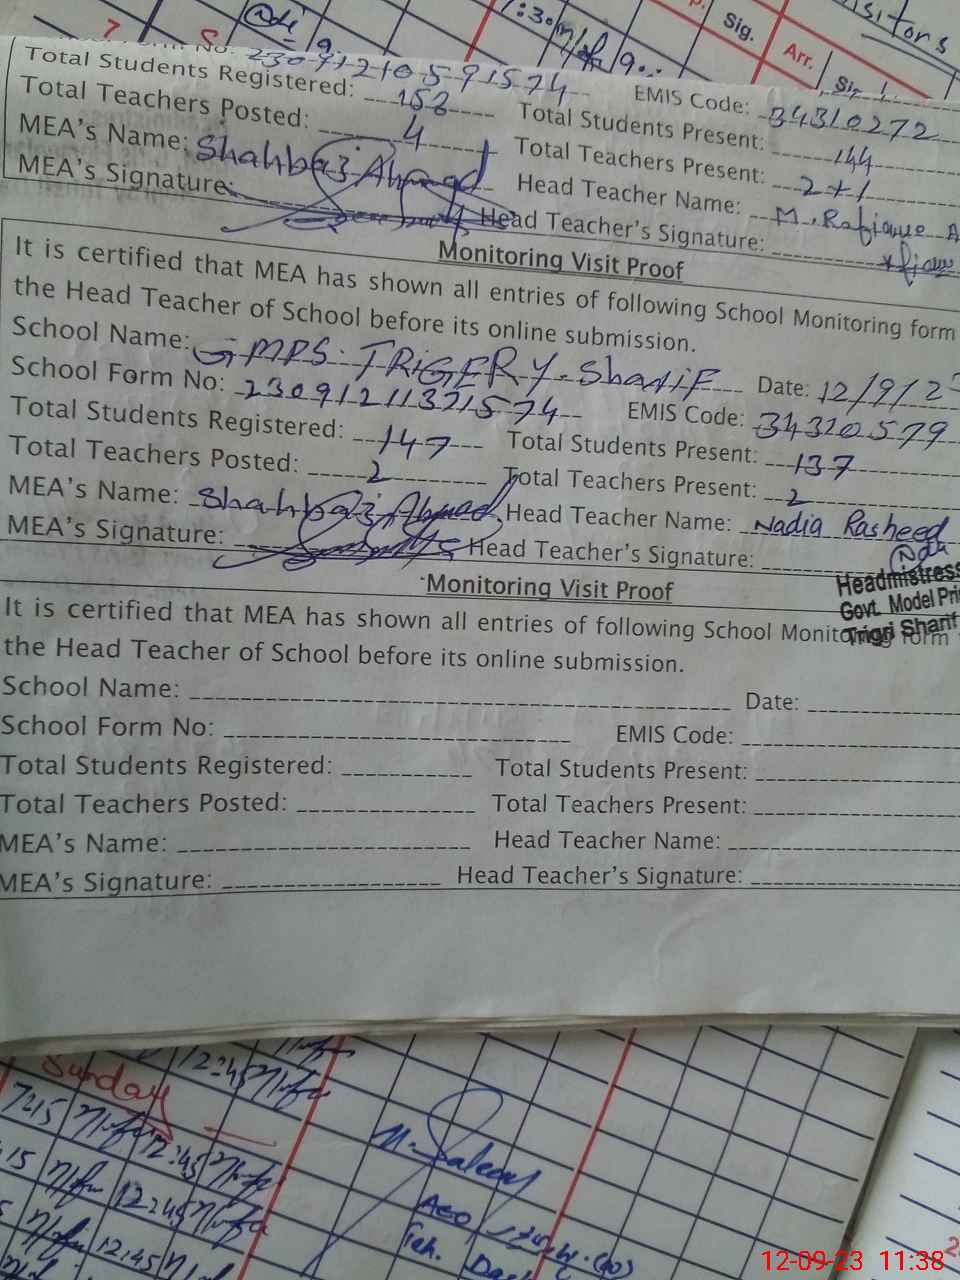 7:30
9:
Sig.
Arr.
Visitors
No: 2309121059 1574
Total Students Registered: 158
EMIS Code: 34310272
Total Teachers Posted: 4
Total Students Present: 144
MEA's Name: Shahbaz Ahmad
Total Teachers Present: 2+1
MEA's Signature:
Head Teacher Name: M. Rafique A
Head Teacher's Signature:
Monitoring Visit Proof
It is certified that MEA has shown all entries of following School Monitoring form
the Head Teacher of School before its online submission.
School Name: GMPS. TRIGERY. Sharif
Date: 12/9/23
School Form No: 23091211371574
EMIS Code: 34310579
Total Students Registered: 147
Total Students Present: 137
Total Teachers Posted: 2
Total Teachers Present: 2
MEA's Name: Shahbaz Ahmad
Head Teacher Name: Nadia Rasheed
MEA's Signature:
Head Teacher's Signature:
Headmistress
Govt. Model Pri
Trigri Sharif
Monitoring Visit Proof
It is certified that MEA has shown all entries of following School Monitoring form
the Head Teacher of School before its online submission.
School Name:
Date:
School Form No:
EMIS Code:
Total Students Registered:
Total Students Present:
Total Teachers Posted:
Total Teachers Present:
MEA's Name:
Head Teacher Name:
MEA's Signature:
Head Teacher's Signature:
Sunday
12:45
7:15 12:45
:15 12:45
12:45
AEO
12-09-23 11:38